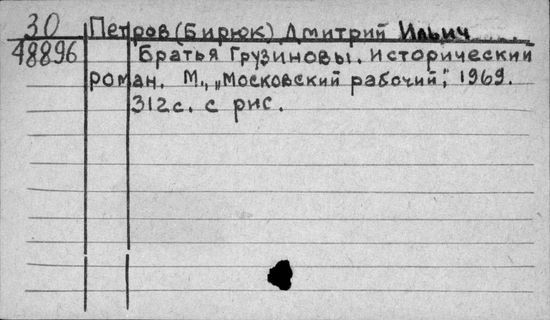 30 Петров (Бирюк) Дмитрий Ильич
48896 Братья Грузиновы. Исторический
роман. М., „Московский рабочий", 1969.
312с. с рис.